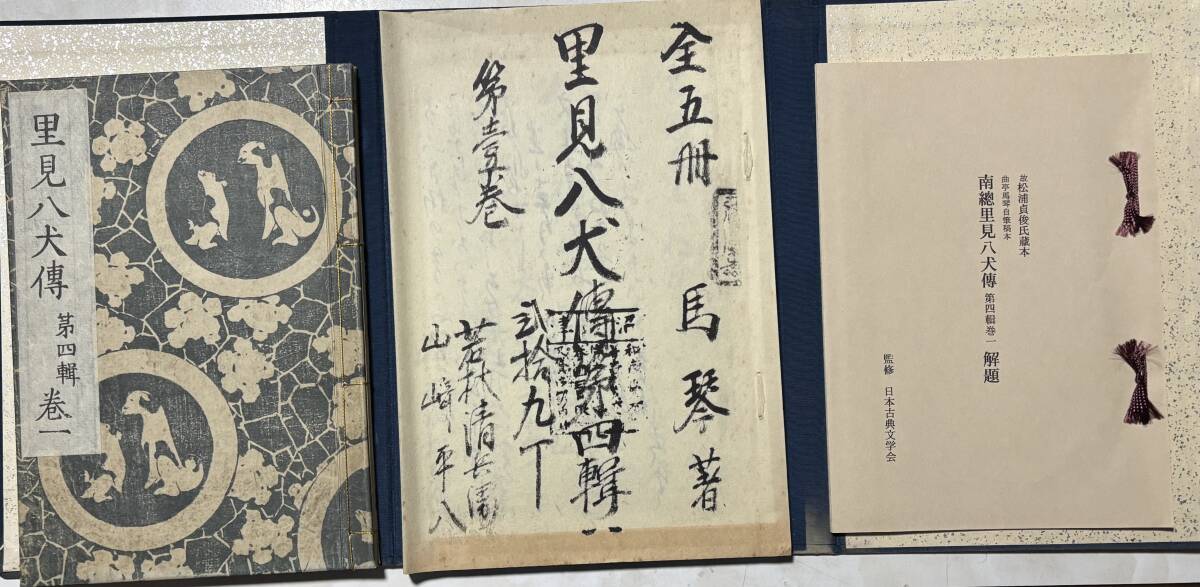 里見八犬傳 第四輯 巻一
全五冊 馬琴著
里見八犬傳第四輯
第壹巻
弐拾九丁
若林清兵衛
山崎平八
故松浦貞俊氏蔵本
曲亭馬琴自筆稿本
南總里見八犬傳 第四輯巻一 解題
監修 日本古典文学会